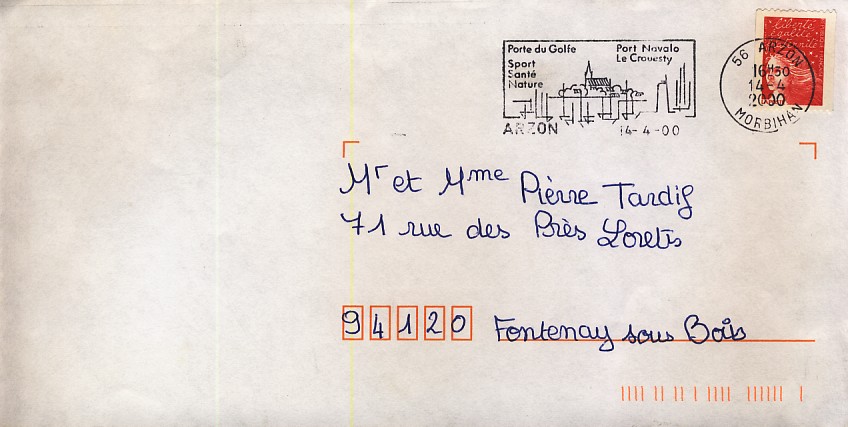 Porte du Golfe
Sport
Santé
Nature
Port Navalo
Le Crouesty
ARZON 14-4-00
56 ARZON
16H50
14-4
2000
MORBIHAN
liberté
égalité
fraternité
Mr et Mme Pièrre Tardif
71 rue des Près Lorets
94120 Fontenay sous Bois